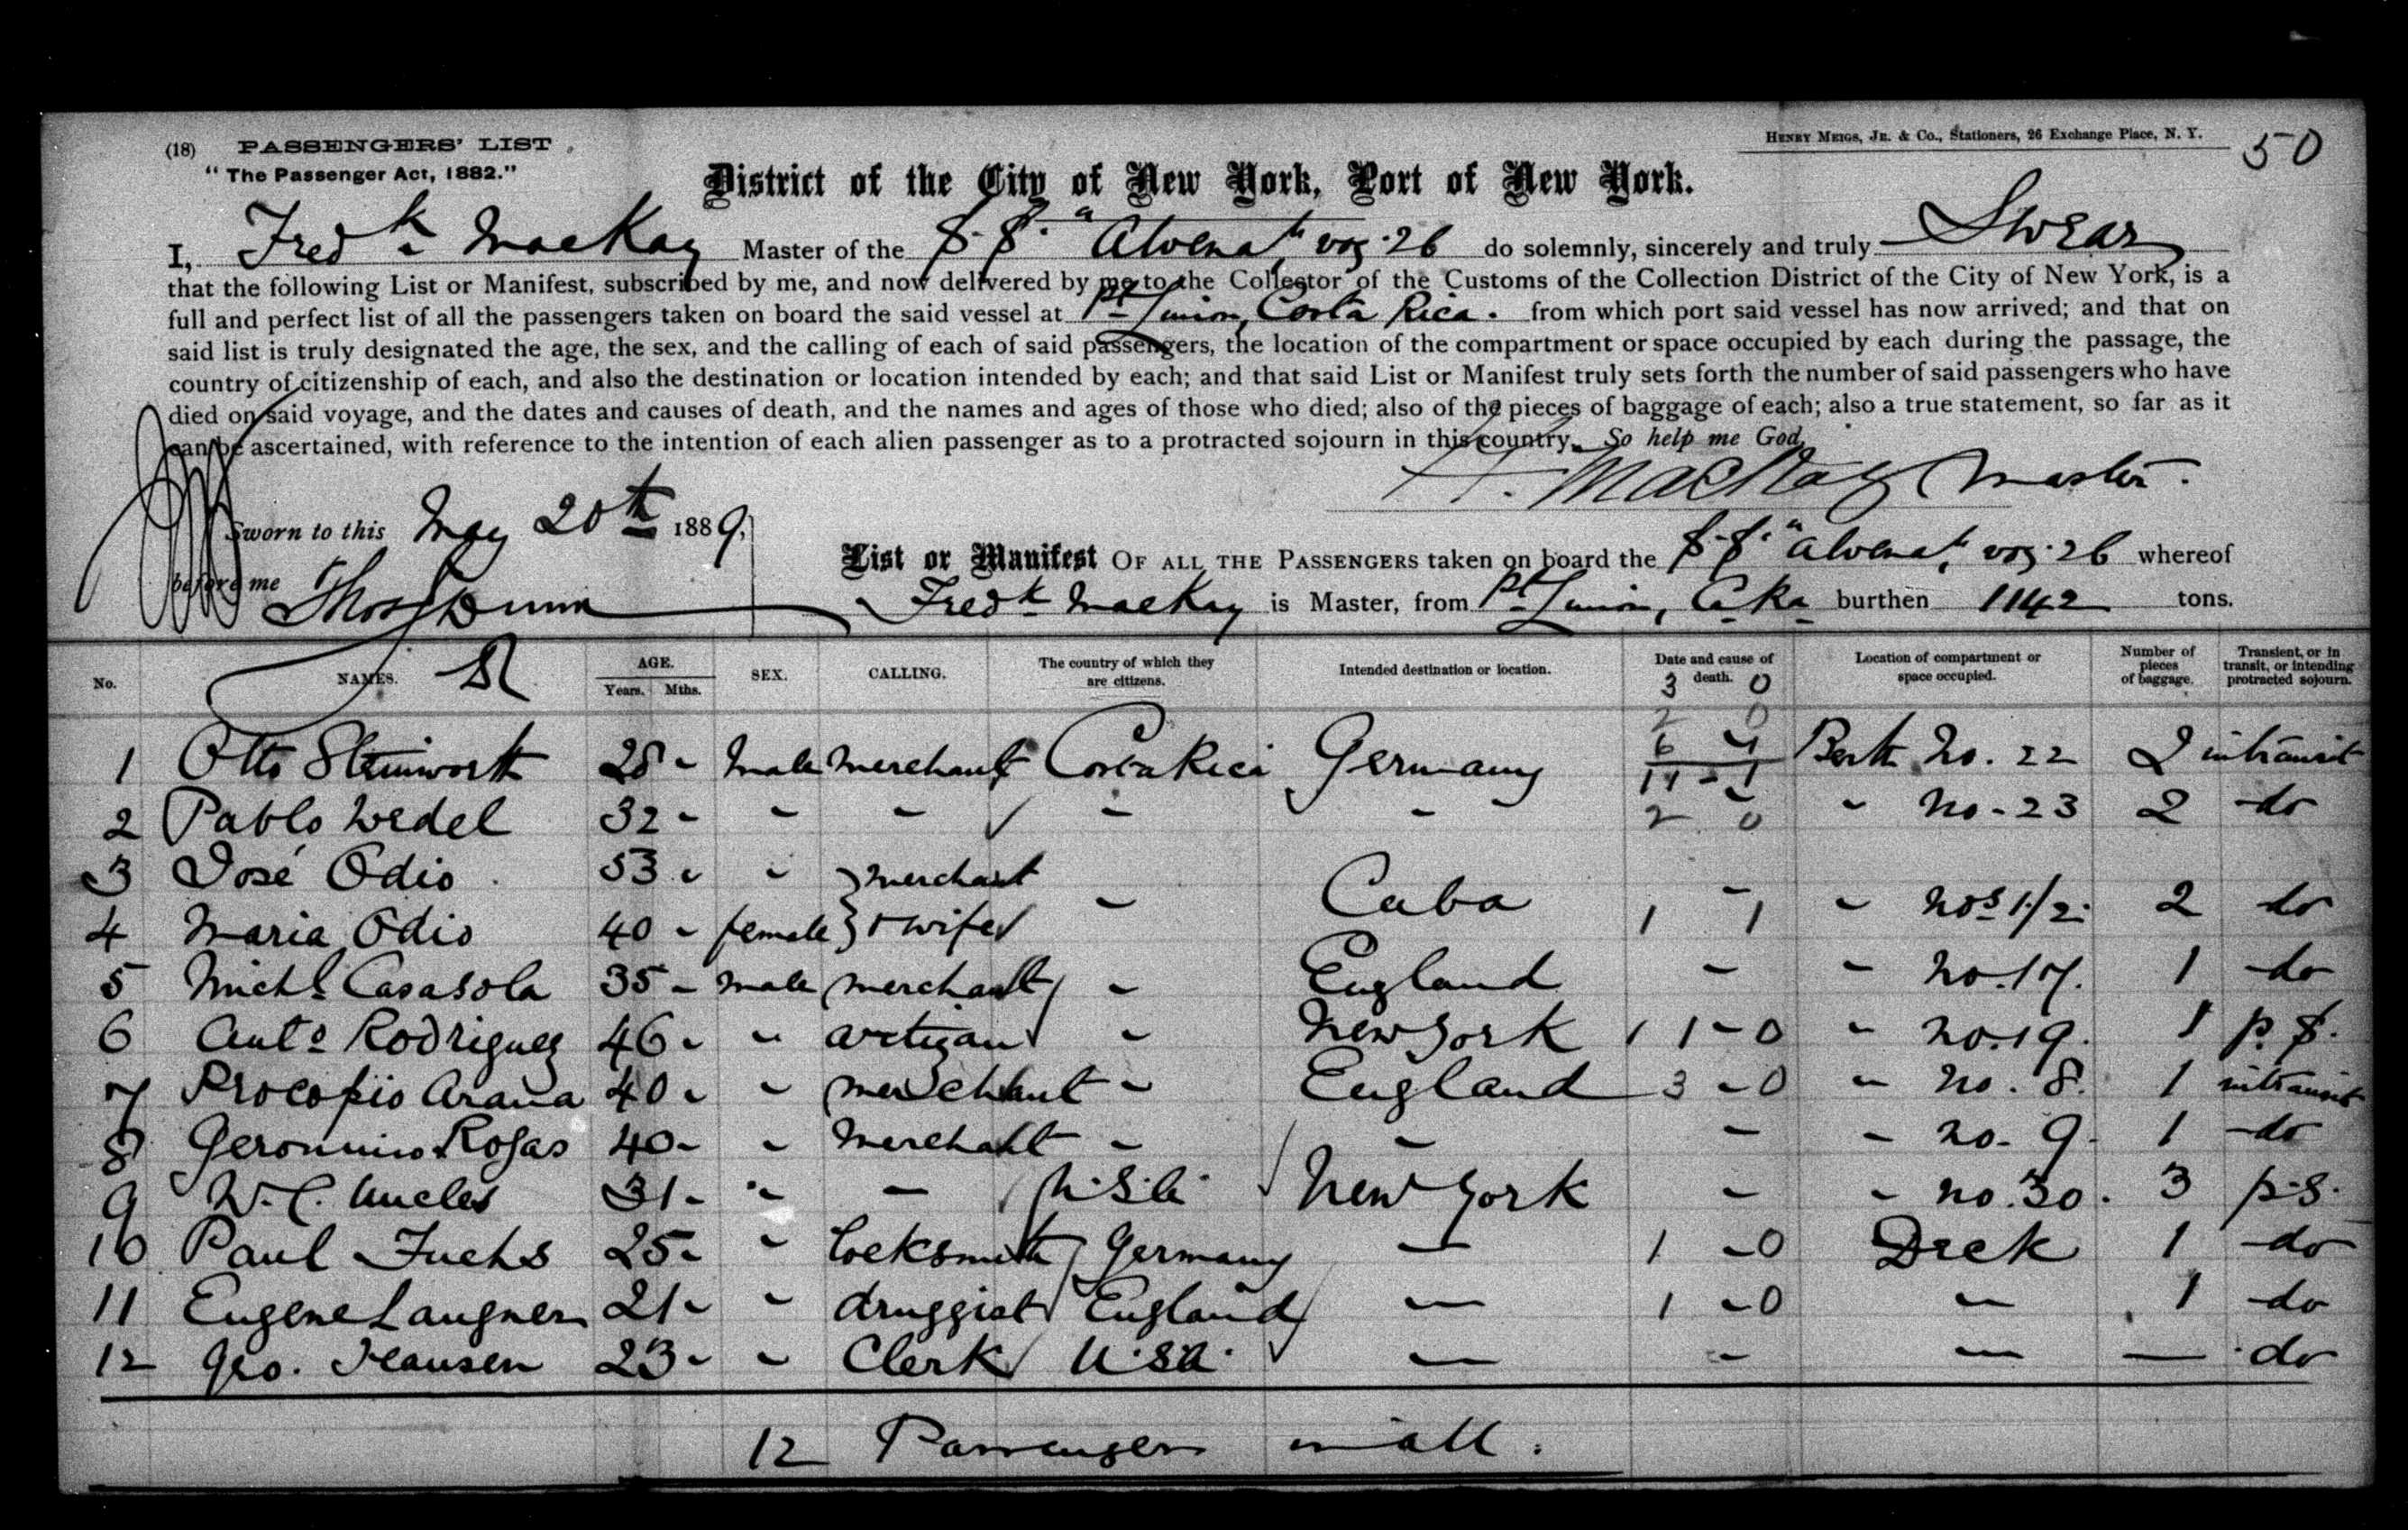 (18) PASSENGERS' LIST
HENRY MEIGS, JR. & CO., Stationers, 26 Exchange Place, N. Y.
50
"The Passenger Act, 1882."
District of the City of New York, Port of New York.
I, Fredk MacKay Master of the S.S. "Alvena" voy. 26 do solemnly, sincerely and truly Swear
that the following List or Manifest, subscribed by me, and now delivered by me to the Collector of the Customs of the Collection District of the City of New York, is a
full and perfect list of all the passengers taken on board the said vessel at Pt Limon, Costa Rica. from which port said vessel has now arrived; and that on
said list is truly designated the age, the sex, and the calling of each of said passengers, the location of the compartment or space occupied by each during the passage, the
country of citizenship of each, and also the destination or location intended by each; and that said List or Manifest truly sets forth the number of said passengers who have
died on said voyage, and the dates and causes of death, and the names and ages of those who died; also of the pieces of baggage of each; also a true statement, so far as it
can be ascertained, with reference to the intention of each alien passenger as to a protracted sojourn in this country. So help me God.
F. MacKay Master.
Sworn to this May 20th 1889,
before me Thos Dunn
List or Manifest OF ALL THE PASSENGERS taken on board the S.S. "Alvena", voy. 26 whereof
Fredk MacKay is Master, from Pt Limon, Ca Ra burthen 1142 tons.
No. NAMES. AGE. Years. Mths. SEX. CALLING. The country of which they are citizens. Intended destination or location. Date and cause of death. Location of compartment or space occupied. Number of pieces of baggage. Transient, or in transit, or intending protracted sojourn.
3 0
2 0
1 Otto Steinworth 28 - male merchant Costa Rica Germany 6 Berth No. 22 2 in transit
2 Pablo Wedel 32 - " - - - 2 0 " No. 23 2 do
3 José Odio 53 - " } merchant
4 Maria Odio 40 - female } + wife - Cuba 1 - 1 " Nos 1/2. 2 do
5 Michl Casasola 35 - male merchant - England - " No. 17. 1 do
6 Anto Rodriguez 46 - " artizan - New York 1 1 - 0 " No. 19. 1 p. s.
7 Procopio Arana 40 - " merchant - England 3 - 0 " No. 8. 1 in transit
8 Geronimo Rojas 40 - " merchant - - - " No. 9. 1 do
9 W. C. 31 - " - U.S.A. New York - " No. 30. 3 p.s.
10 Paul Fuchs 25 - " locksmith Germany - 1 - 0 Deck 1 do
11 Eugene Laugner 21 - " druggist England - 1 - 0 - 1 do
12 Geo. Hansen 23 - " Clerk U.S.A. - - - - do
12 Passengers in all.